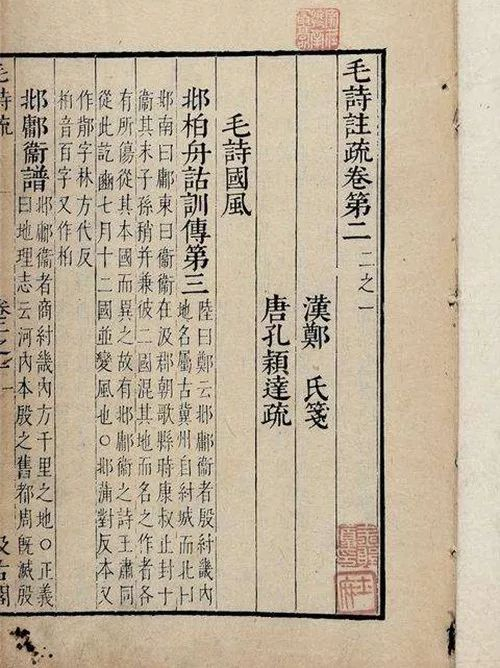 毛詩註疏卷第二 二之一
漢鄭 氏箋
唐孔穎達疏
毛詩國風
邶柏舟詁訓傳第三 陸曰鄭云邶鄘衞者殷紂畿內
地名屬古冀州自紂城而北曰
邶南曰鄘東曰衞衞在汲郡朝歌縣時康叔止封于
衞其末子孫稍并兼彼二國混其地而名之作者各
有所傷從其本國而異之故有邶鄘衞之詩王肅同
從此訖豳七月十二國並變風也○邶蒲對反本又
作鄁字林方代反
柏音百字又作栢
邶鄘衞譜 邶鄘衞者商紂畿內方千里之地○正義
曰地理志云河內本殷之舊都周旣滅殷
毛詩疏